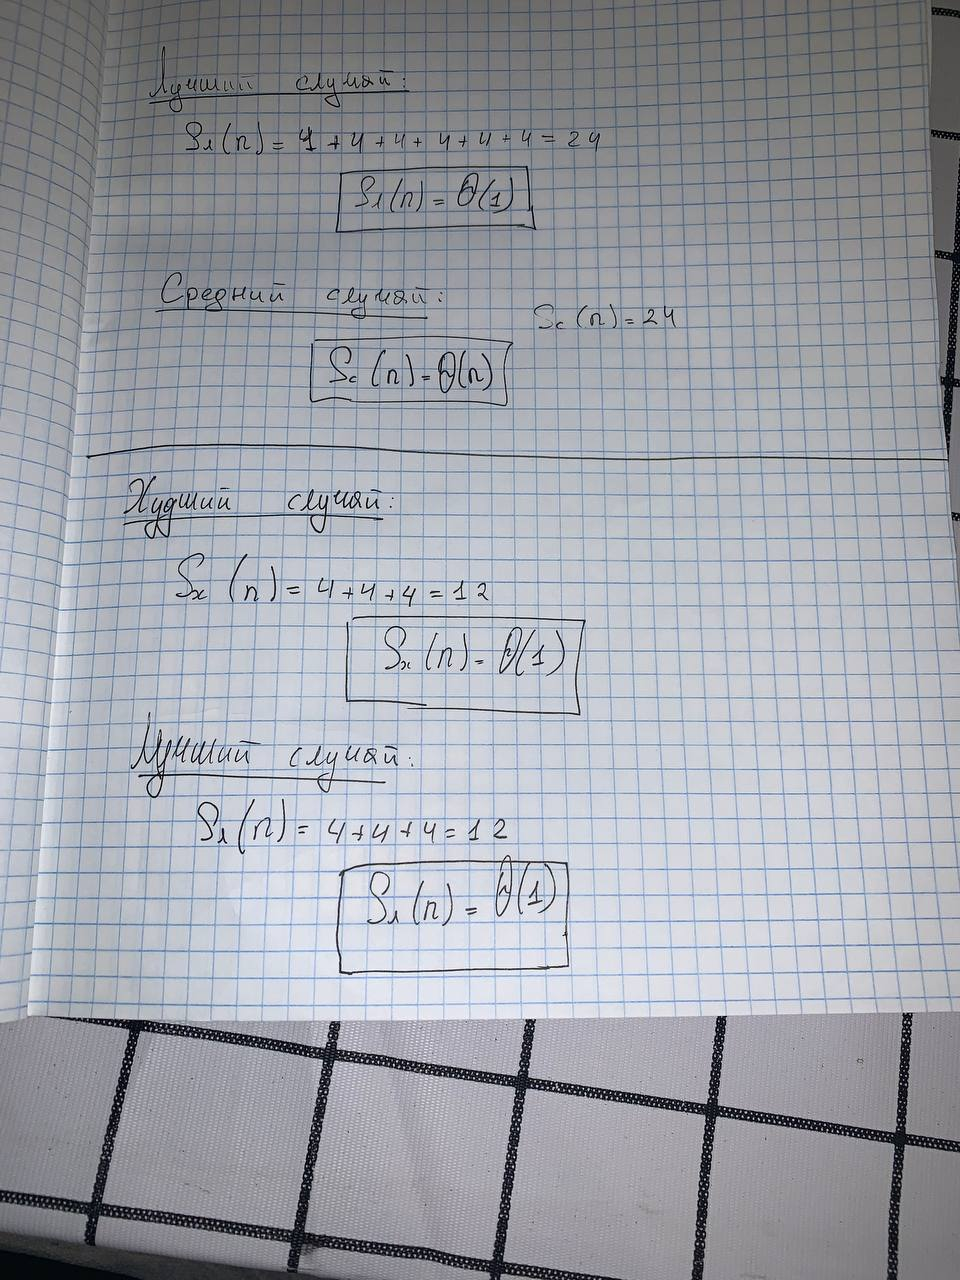 Лучший случай:
Sл(n) = 4 + 4 + 4 + 4 + 4 + 4 = 24
Sл(n) = Θ(1)
Средний случай:
Sс(n) = 24
Sс(n) = Θ(n)
Худший случай:
Sх(n) = 4 + 4 + 4 = 12
Sх(n) = Θ(1)
Лучший случай:
Sл(n) = 4 + 4 + 4 = 12
Sл(n) = Θ(1)